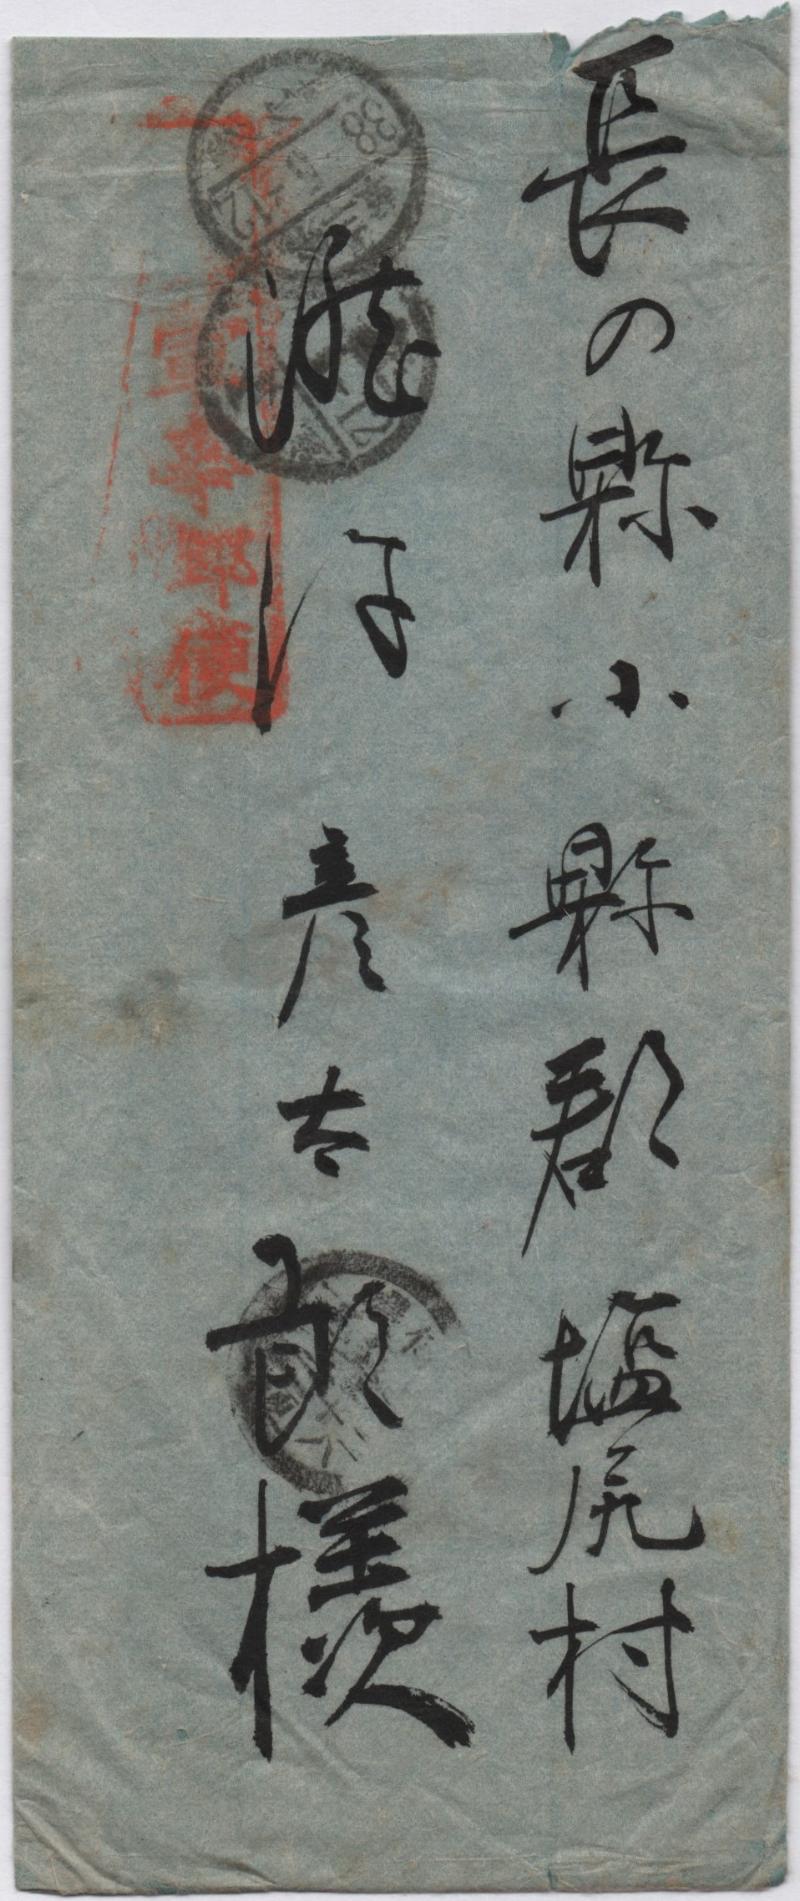 長の縣小縣郡塩尻村
瀧沢彦太郎様
軍事郵便
38
12
12